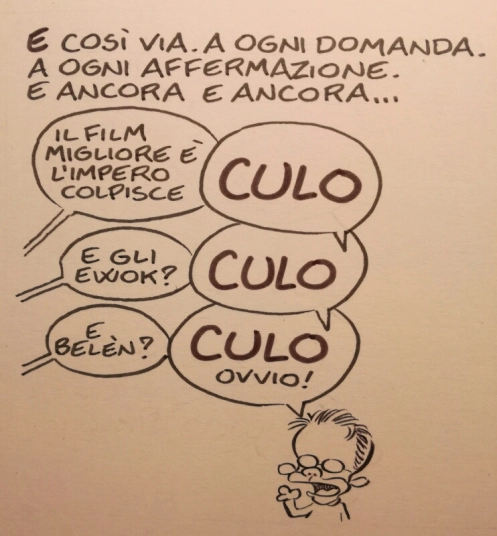 E COSÌ VIA. A OGNI DOMANDA.
A OGNI AFFERMAZIONE.
E ANCORA E ANCORA...
IL FILM
MIGLIORE È
L'IMPERO
COLPISCE
CULO
E GLI
EWOK?
CULO
E
BELÈN?
CULO
OVVIO!